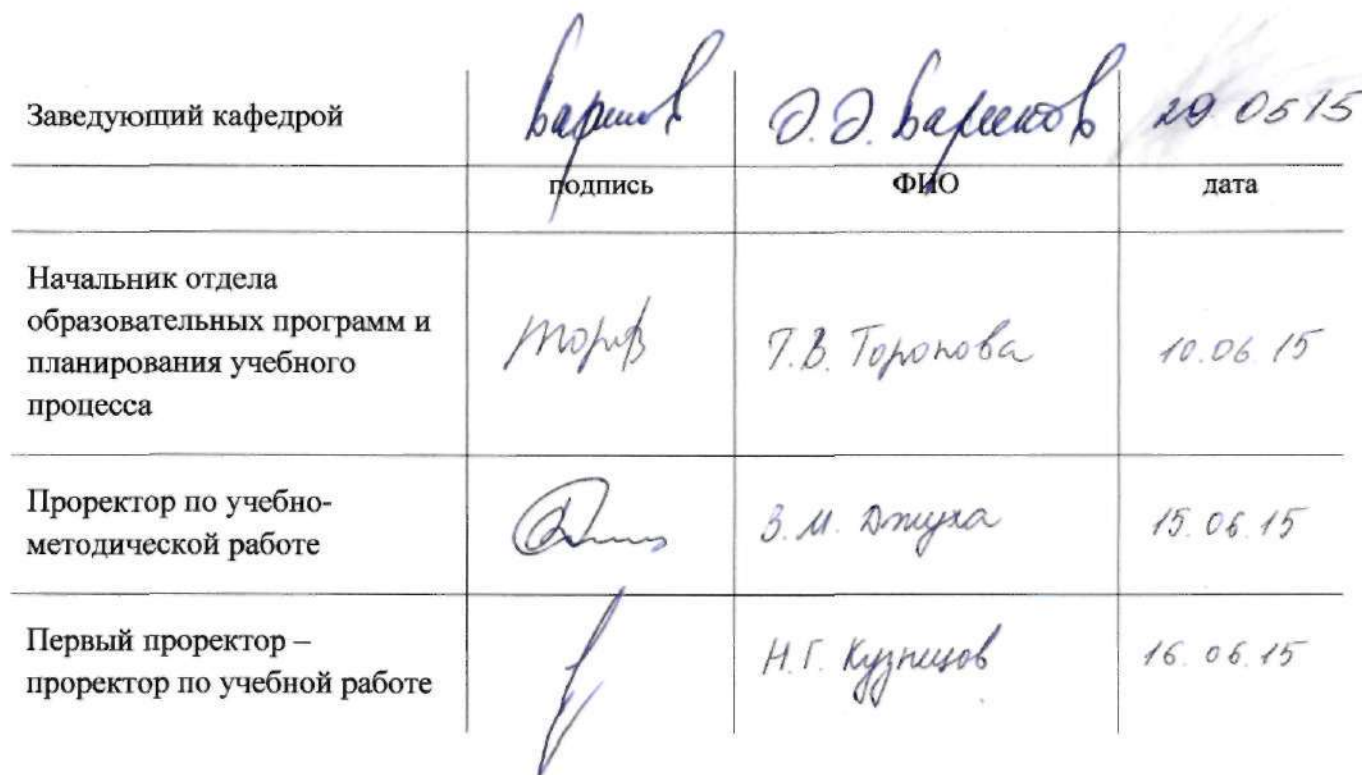 Заведующий кафедрой
29 05 15
подпись ФИО дата
Начальник отдела
образовательных программ и
планирования учебного
процесса
Т.В. Торопова 10.06.15
Проректор по учебно-
методической работе
В.М. Джуха 15.06.15
Первый проректор –
проректор по учебной работе
Н.Г. Кузнецов 16.06.15